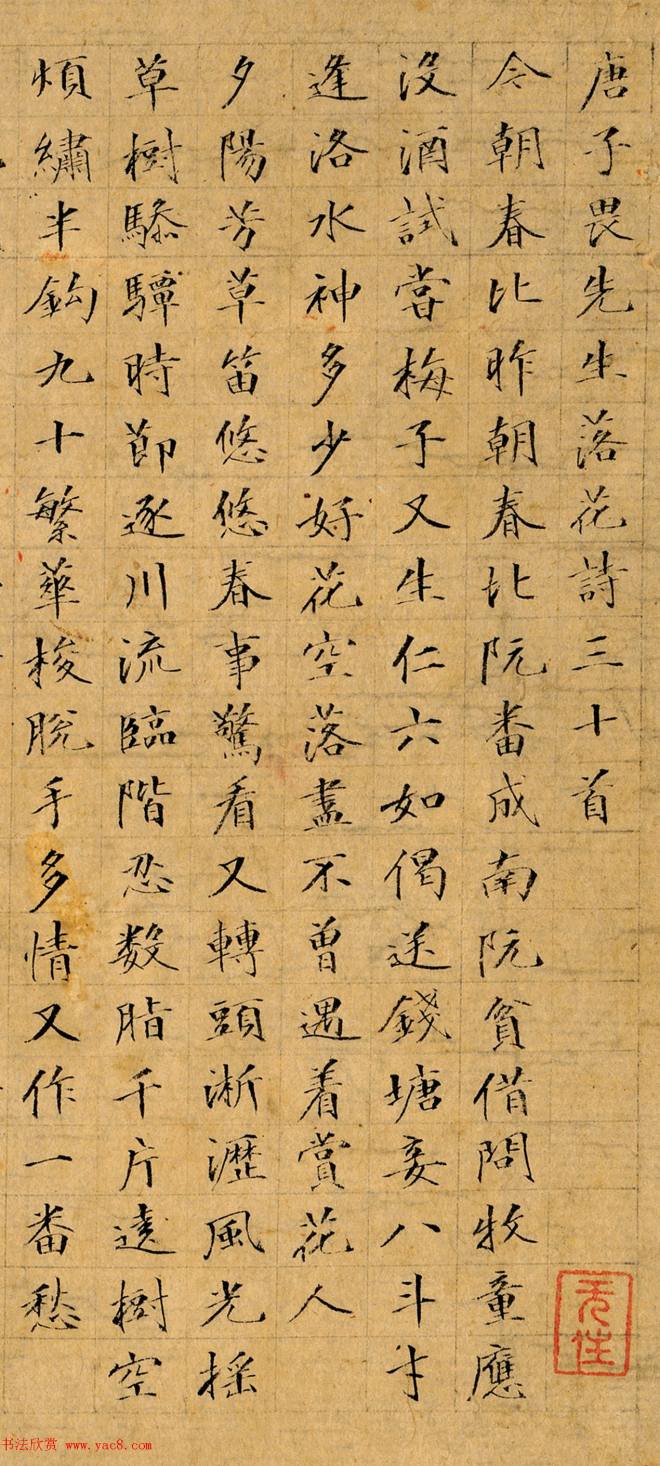 唐子畏先生落花詩三十首
今朝春比昨朝春北阮番成南阮貧借問牧童應
沒酒試嘗梅子又生仁六如偈送錢塘妾八斗才
逢洛水神多少好花空落盡不曾遇着賞花人
夕陽芳草笛悠悠春事驚看又轉頭淅瀝風光搖
草樹驂驔時節逐川流臨階忍数脂千片遶樹空
煩繡半鈎九十繁華梭脫手多情又作一番愁
书法欣赏 www.yac8.com